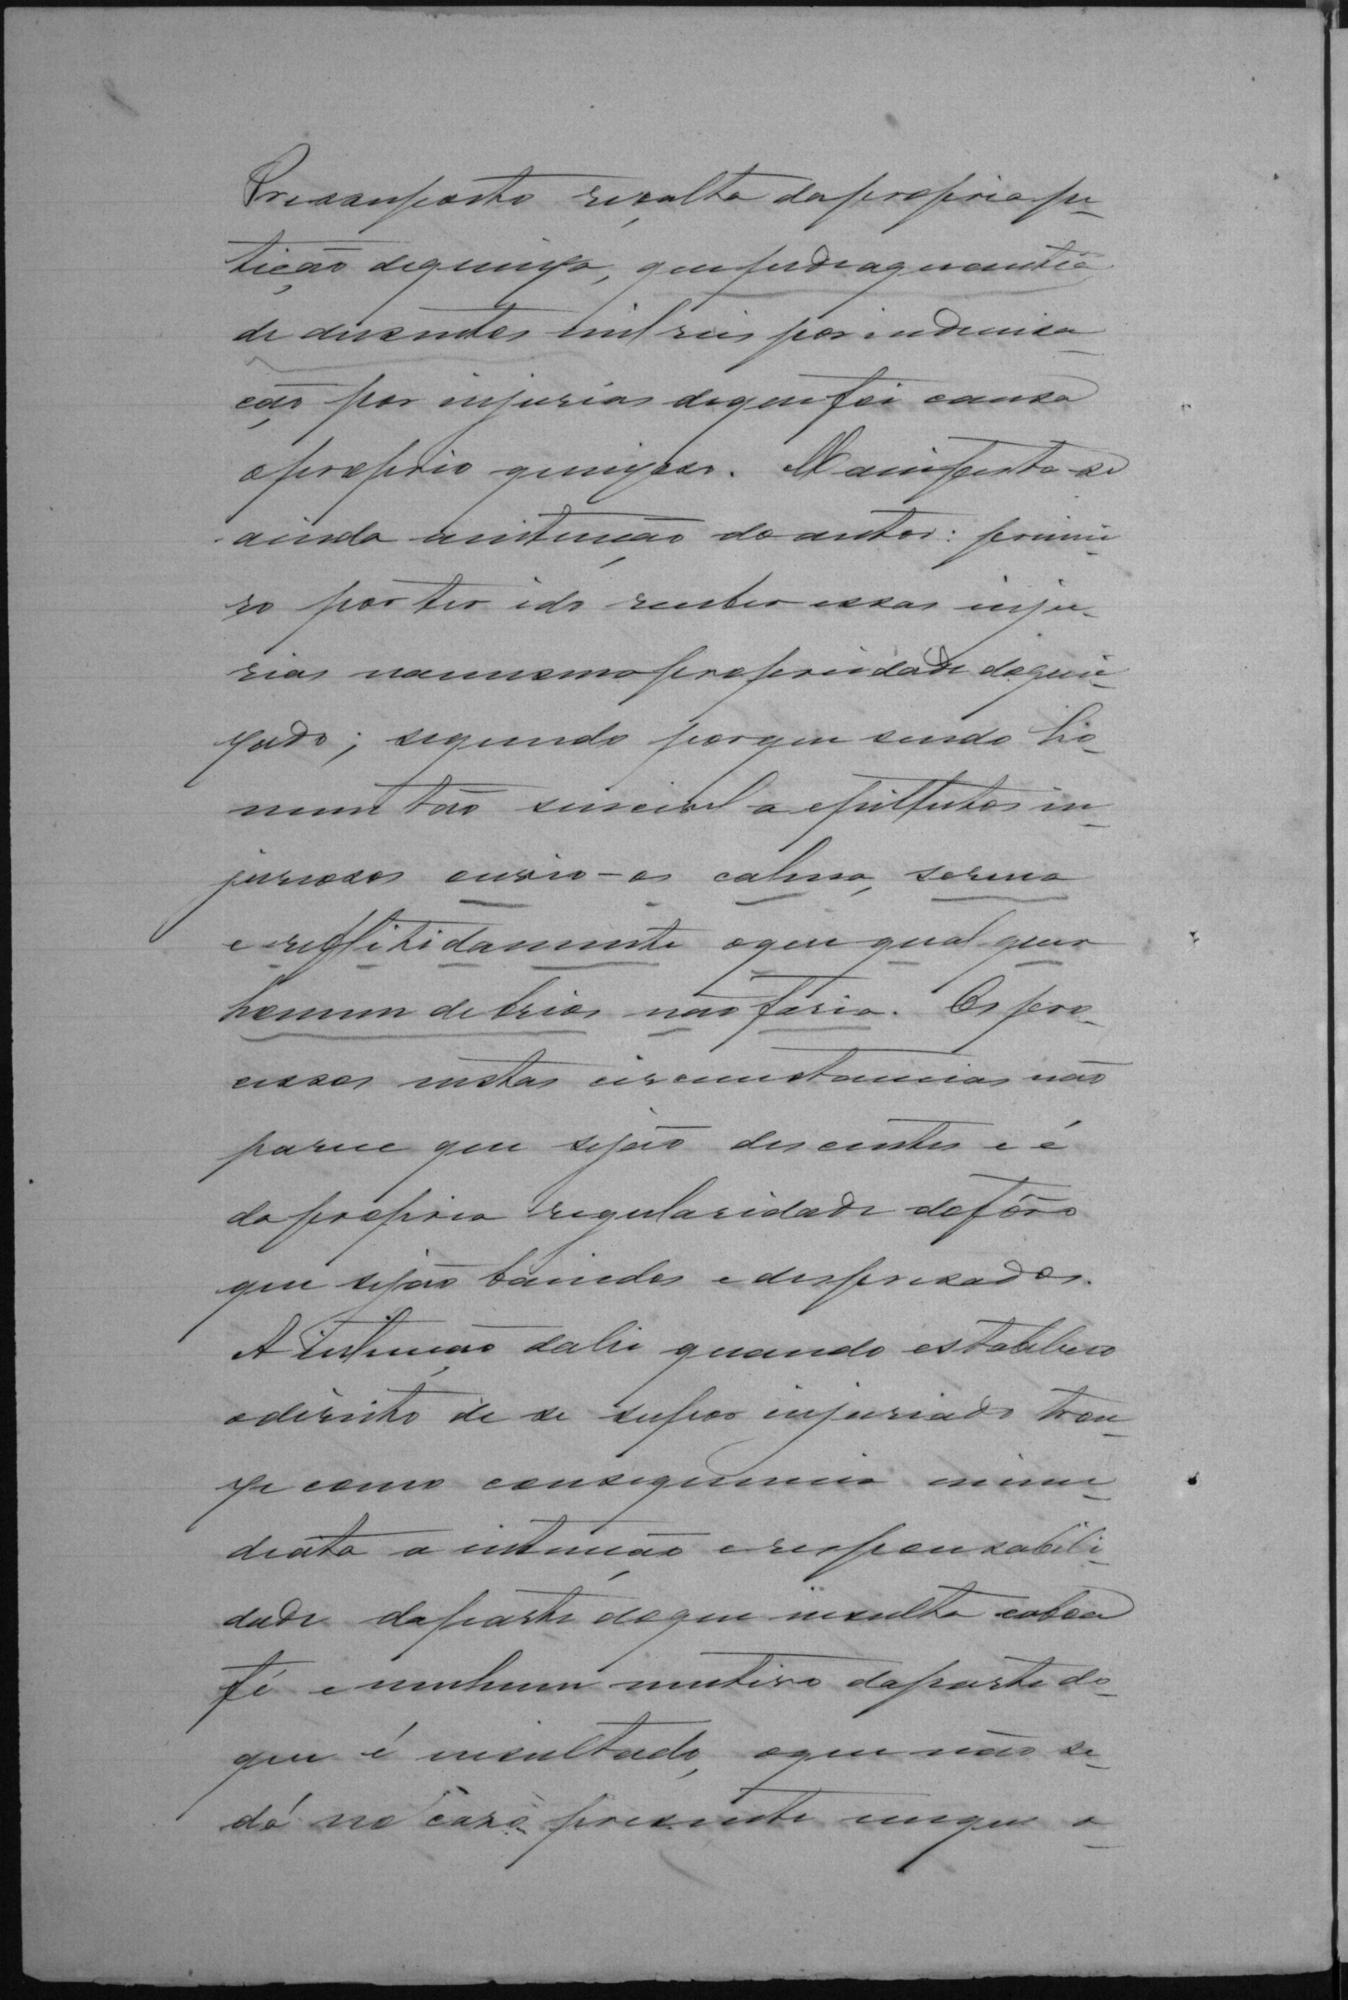 Pressuposto rezulta da propria pe-
tição de queixa, que pede a quantia
de duzentos mil reis por indemisa-
ção por injurias de que foi causa
o proprio queixoso. Manifesta-se
ainda a intenção do autor: primei-
ro por ter ido receber essas inju-
rias na mesma propriedade do quei-
xado; segundo porque sendo ho-
mem tão sencivel a epilhetos in-
juriosos ouvio-os calma, serena
e reflitidamente o que qual quer
homem de brios não faria. Os pro-
cessos nestas circumstancias não
parece que sejão descentes e é
da propria regularidade do fôro
que sejão banidos e despresados.
A intenção da lei quando estabelece
o direito de se supor injuriado trou-
xe como consequencia imme-
diata a intenção e responsabili-
dade da parte do que insulta e a boa
fé e nenhum motivo da parte do
que é insultado, o que não se
dá no caso presente em que o